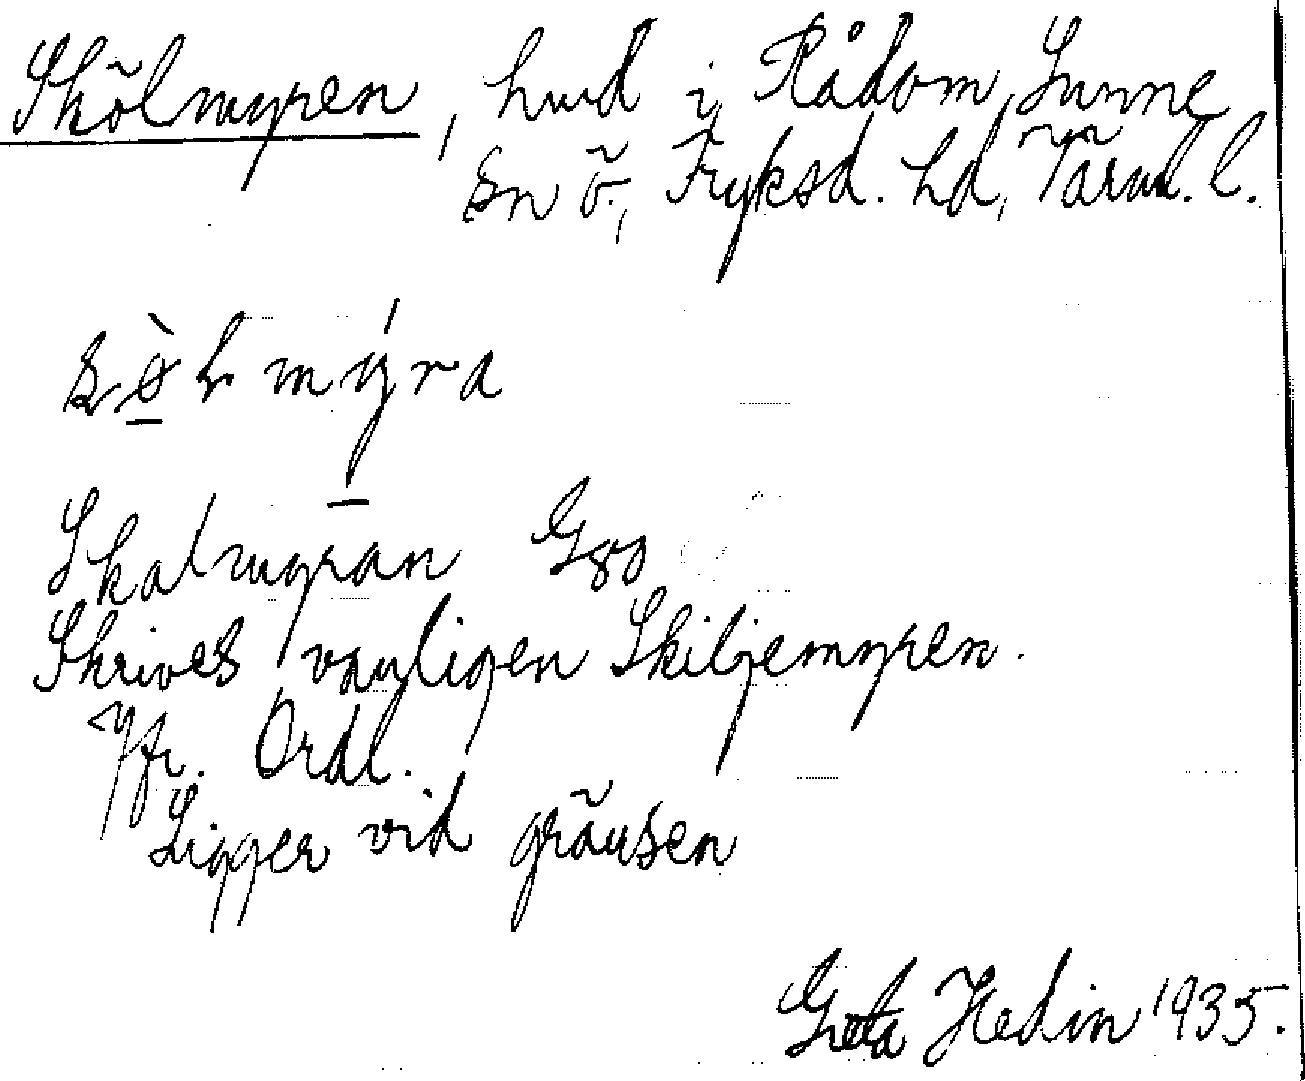 Skölmyren, hmd i Rådom, Sunne
sn ö., Fryksd. hd, Värml. l.
Skalmyran G80
Skrives vanligen Skiljemyren.
Jfr. Ordl.
Ligger vid gränsen
Greta Hedin 1935.